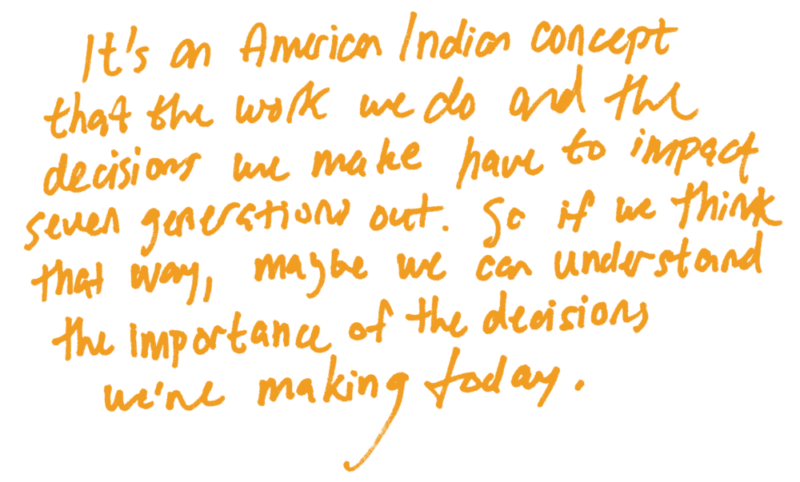 It's an American Indian concept
that the work we do and the
decisions we make have to impact
seven generations out. So if we think
that way, maybe we can understand
the importance of the decisions
we're making today.